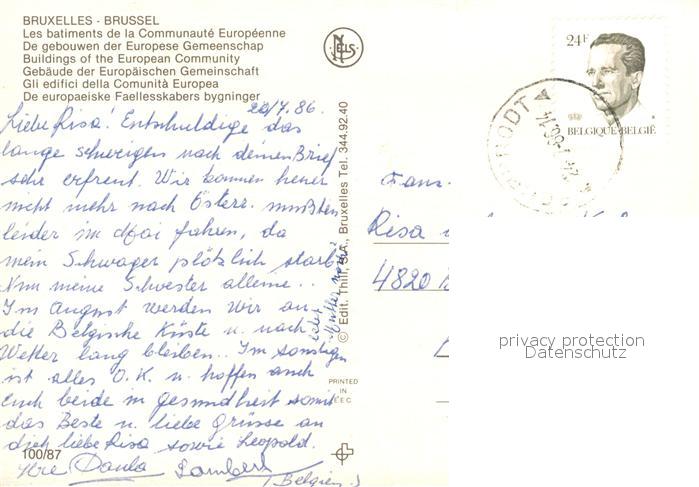 BRUXELLES - BRUSSEL
Les batiments de la Communauté Européenne
De gebouwen der Europese Gemeenschap
Buildings of the European Community
Gebäude der Europäischen Gemeinschaft
Gli edifici della Comunità Europea
De europaeiske Faellesskabers bygninger
NELS
20/7.86.
Liebe Risa! Entschuldige das
lange schweigen nach deinen Brief
sehr erfreut. Wir kommen heuer
nicht mehr nach Österr. mußten
leider im Mai fahren, da
mein Schwager plötzlich starb.
Nun meine Schwester alleine..
Im August werden wir an
die Belgische Küste u. nach
Wetter lang bleiben.. Im sonstigen
ist alles O.K. u. hoffen auch
euch beide in gesundheit somit
das Beste u. liebe Grüsse an
dich liebe Risa sowie Leopold.
100/87
Ihre Paula Lambert
(Belgien)
© Edit. Thill, S.A., Bruxelles Tel. 344.92.40
PRINTED
IN
E E C
24F
BELGIQUE·BELGIË
RODT
Fam.
Risa
4820
privacy protection
Datenschutz